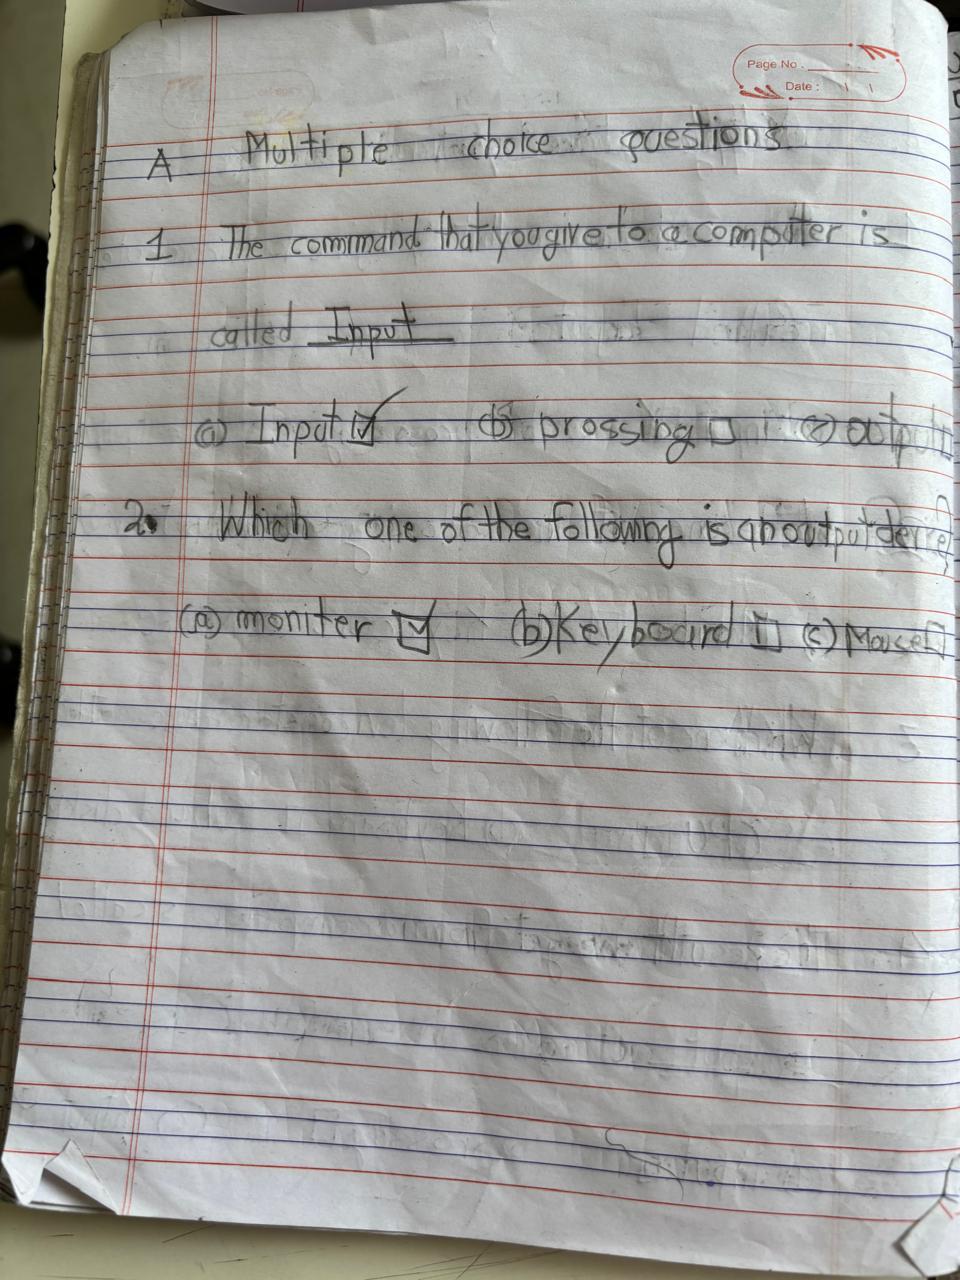 Page No.
Date :
A Multiple choice questions
1 The command that you give to a computer is
called Input
(a) Input ☑ (b) prossing ☐ (c) output ☐
2. Which one of the following is an output
(a) moniter ☑ (b) Keyboard ☐ (c) Mouse ☐